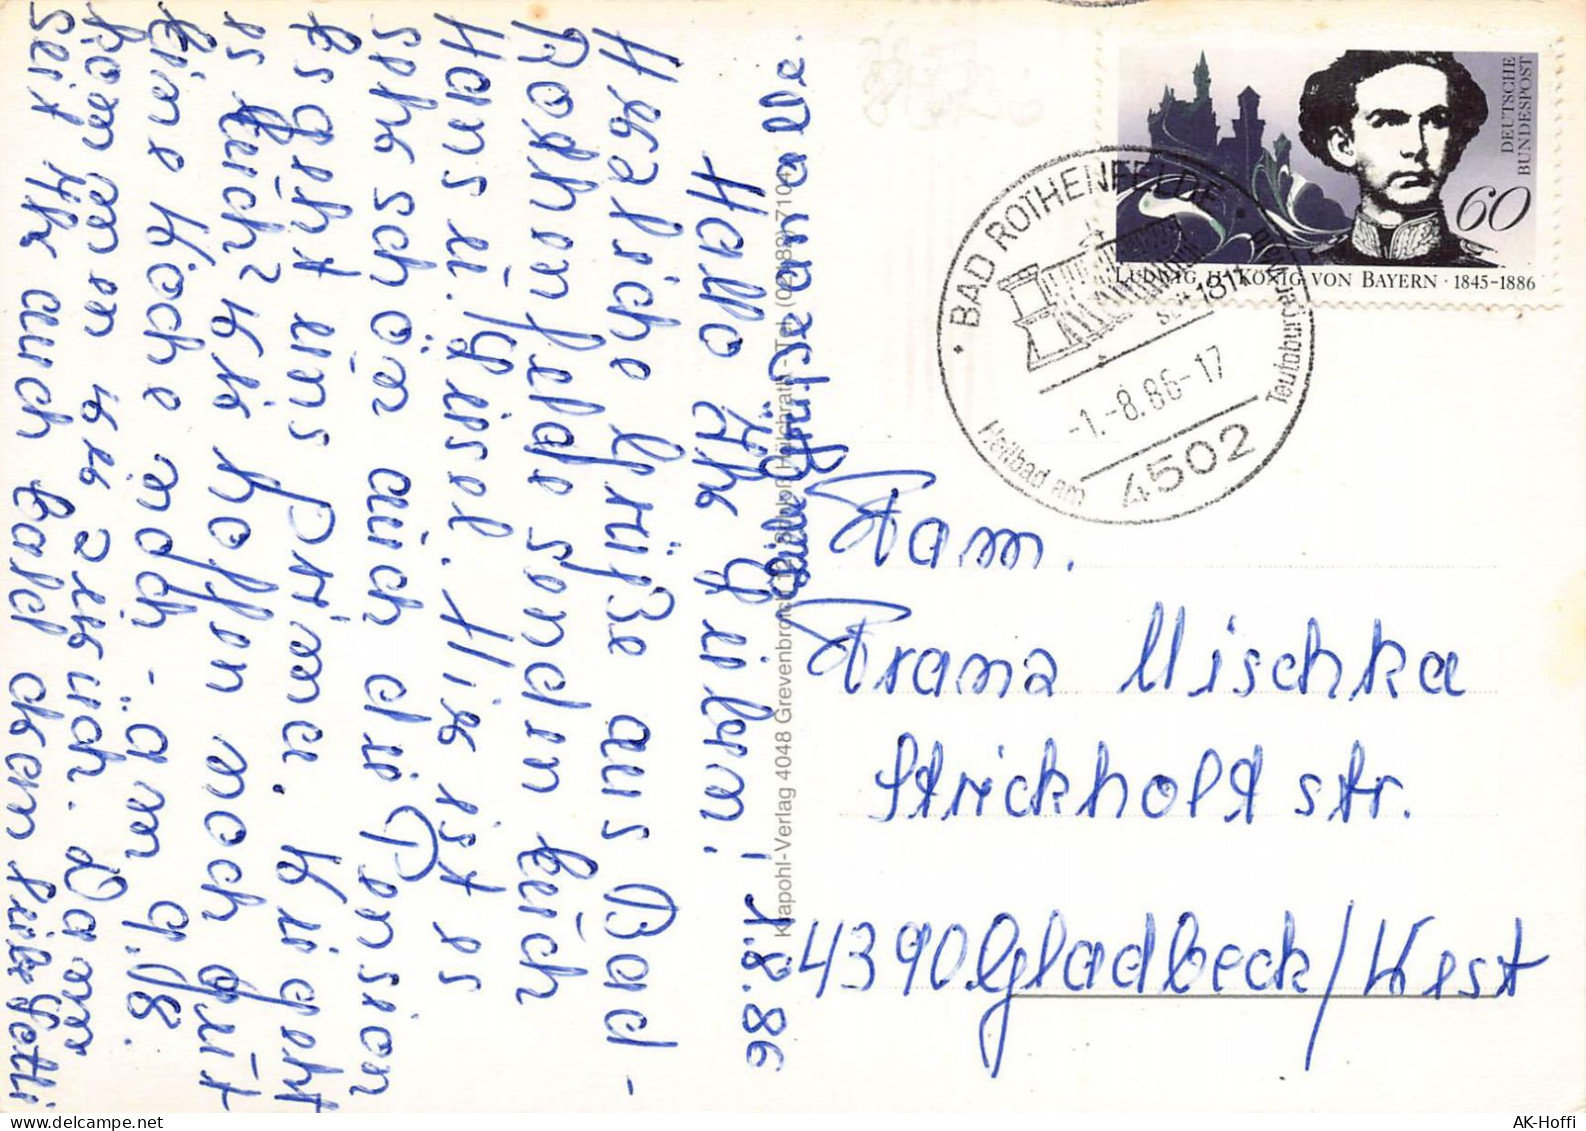 1.8.86
Hallo Ihr Lieben!
Herzliche Grüße aus Bad-
Rothenfelde senden Euch
Hans u. Gisel. Hier ist es
sehr schön auch die Pension
Es geht uns Prima. Wie geht
es Euch? Wir hoffen noch gut
Eine Woche noch - am 9.8.
kommen wir zurück. Dann
seit Ihr auch bald dran liebe
viele Grüße
DEUTSCHE
BUNDESPOST
60
LUDWIG II. KÖNIG VON BAYERN · 1845-1886
BAD ROTHENFELDE
-1.-8.86-17
4502
Heilbad am Teutoburger Wald
Klapohl-Verlag 4048 Grevenbroich
Fam.
Franz Mischka
Strickholt str.
4390 Gladbeck/West
AK-Hoffi